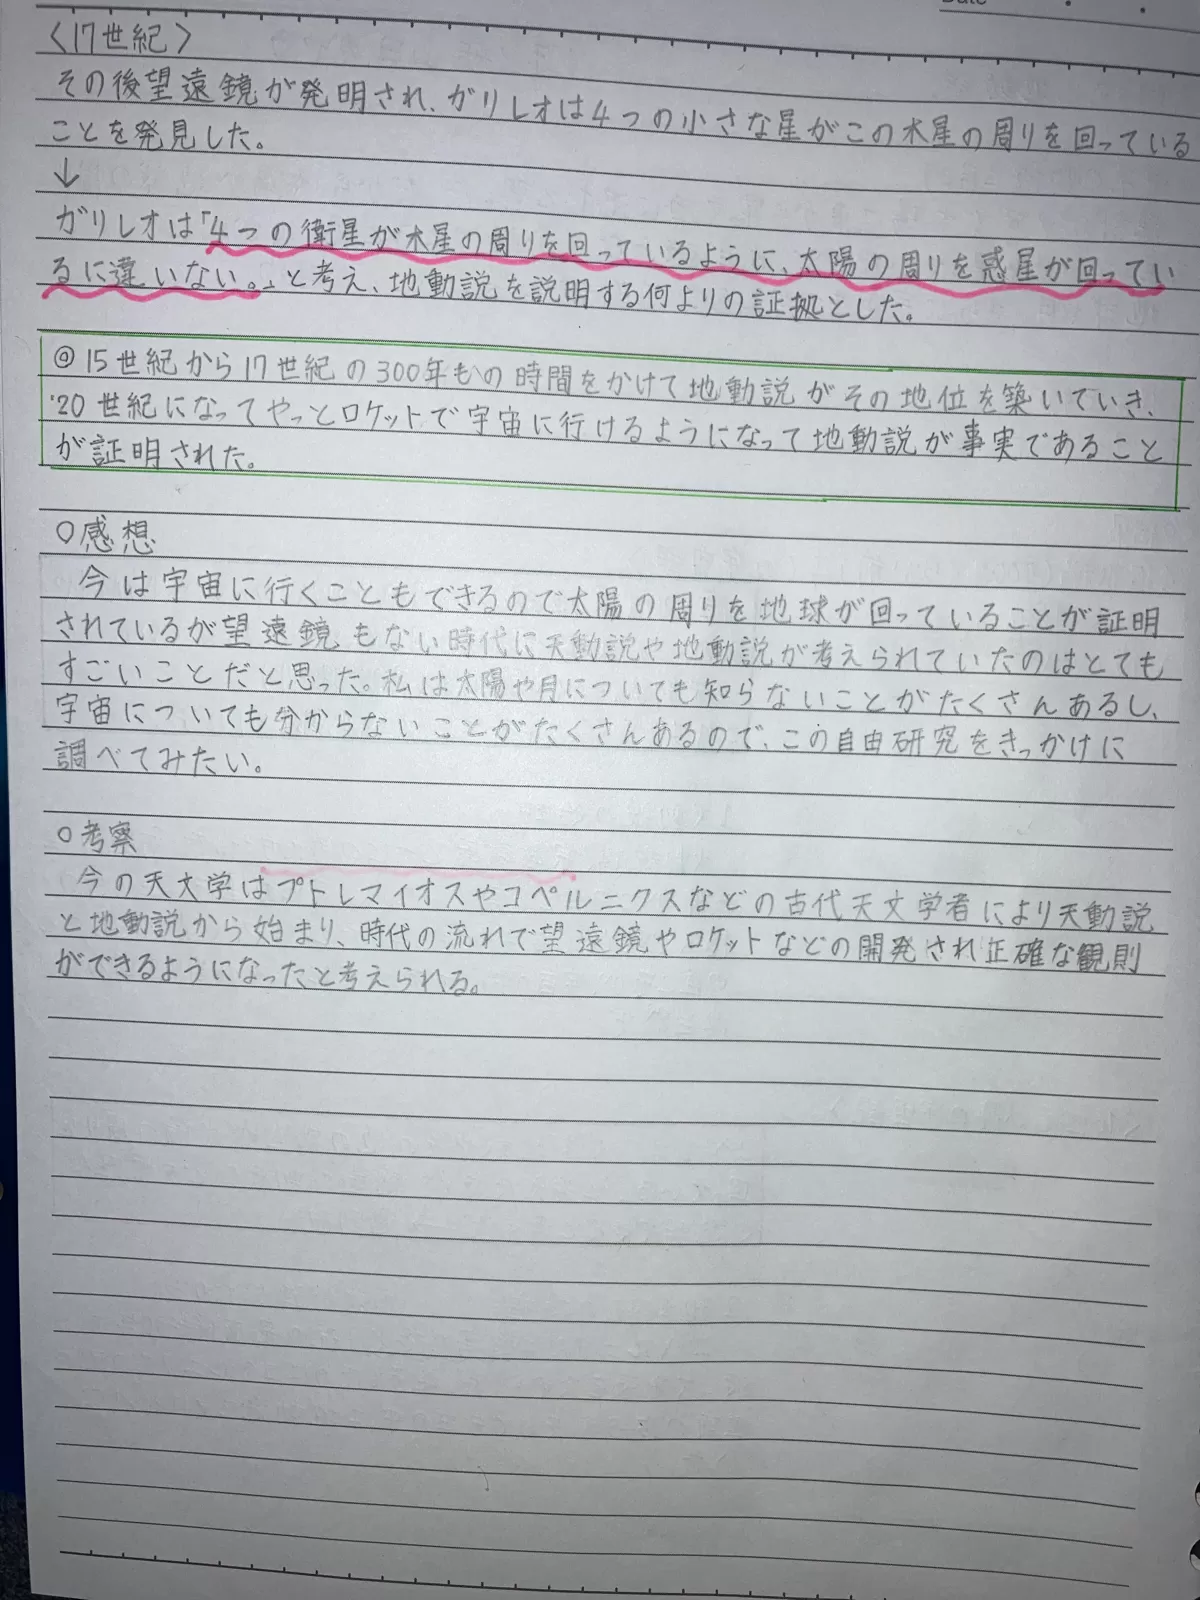 Date
〈17世紀〉
その後望遠鏡が発明され、ガリレオは4つの小さな星がこの木星の周りを回っている
ことを発見した。
↓
ガリレオは「4つの衛星が木星の周りを回っているように、太陽の周りを惑星が回ってい
るに違いない。」と考え、地動説を説明する何よりの証拠とした。
◎15世紀から17世紀の300年もの時間をかけて地動説がその地位を築いていき、
20世紀になってやっとロケットで宇宙に行けるようになって地動説が事実であること
が証明された。
○感想
今は宇宙に行くこともできるので太陽の周りを地球が回っていることが証明
されているが望遠鏡もない時代に天動説や地動説が考えられていたのはとても
すごいことだと思った。私は太陽や月についても知らないことがたくさんあるし、
宇宙についても分からないことがたくさんあるので、この自由研究をきっかけに
調べてみたい。
○考察
今の天文学はプトレマイオスやコペルニクスなどの古代天文学者により天動説
と地動説から始まり、時代の流れで望遠鏡やロケットなどの開発され正確な観則
ができるようになったと考えられる。